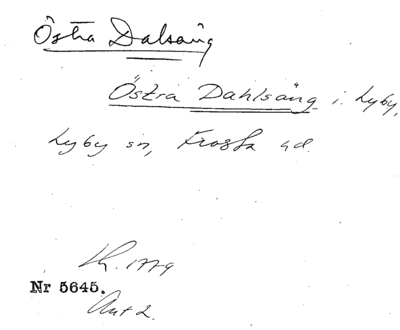 Östra Dalsäng
Östra Dahlsäng i Lyby,
Lyby sn, Frosta hd.
Lh. 1779
Nr 5645.
Akt 2.